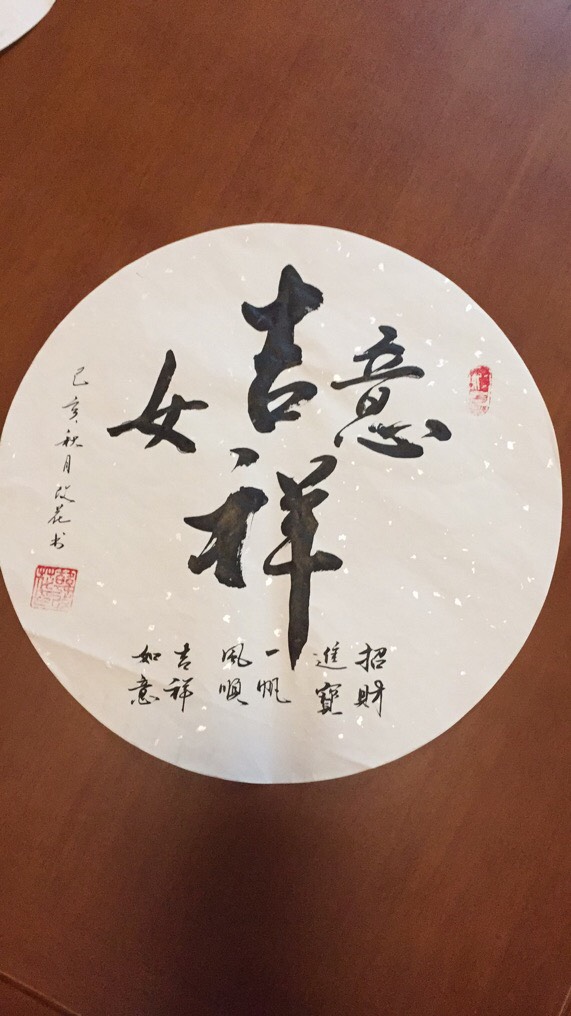 吉祥女意
招財
進寶
一帆
風順
吉祥
如意
己亥秋月花书